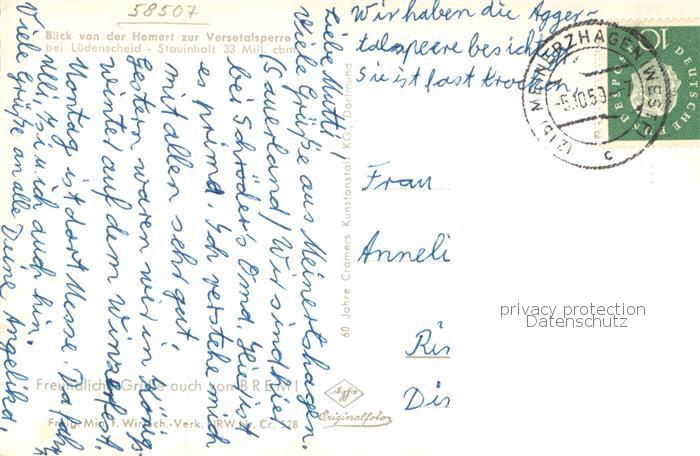 58507
Blick von der Homert zur Versetalsperre
bei Lüdenscheid - Stauinhalt 33 Mill. cbm
Liebe Mutti!
Viele Grüße aus Meinertshagen.
Sauerland! Wir sind hie
bei Schröder's Oma. Hier ist
es prima. Ich verstehe mich
mit allen sehr gut.
Gestern waren wir in König
winter auf dem Winzerfest.
Montag ist dort Messe. Da fährt
Viele Grüße an alle Deine Angelika.
Wir haben die Agger-
talsperre besichtigt
Sie ist fast trocken.
60 Jahre Cramers Kunstanstalt KG, Dortmund
Frau
Anneli
Ri
Dis
Freundliche Grüße auch von BREMI
Agfa
Originalfoto
NRW Nr. Cr. 578
(21b) MEINERZHAGEN (WESTF)
-5.10.59.-7
c
10
DEUTSCHE
BUNDESPOST
privacy protection
Datenschutz